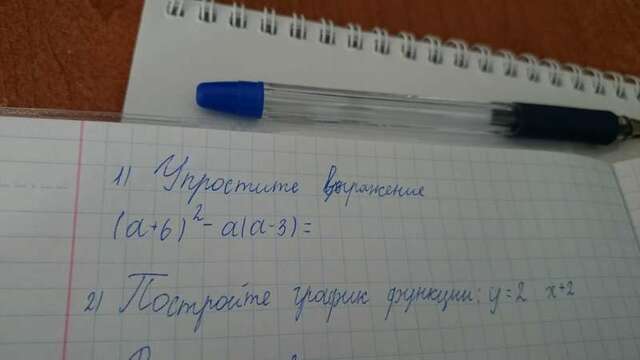 1) Упростите выражение
(a+6)² - a(a-3) =
2) Постройте график функции: y=2 x+2